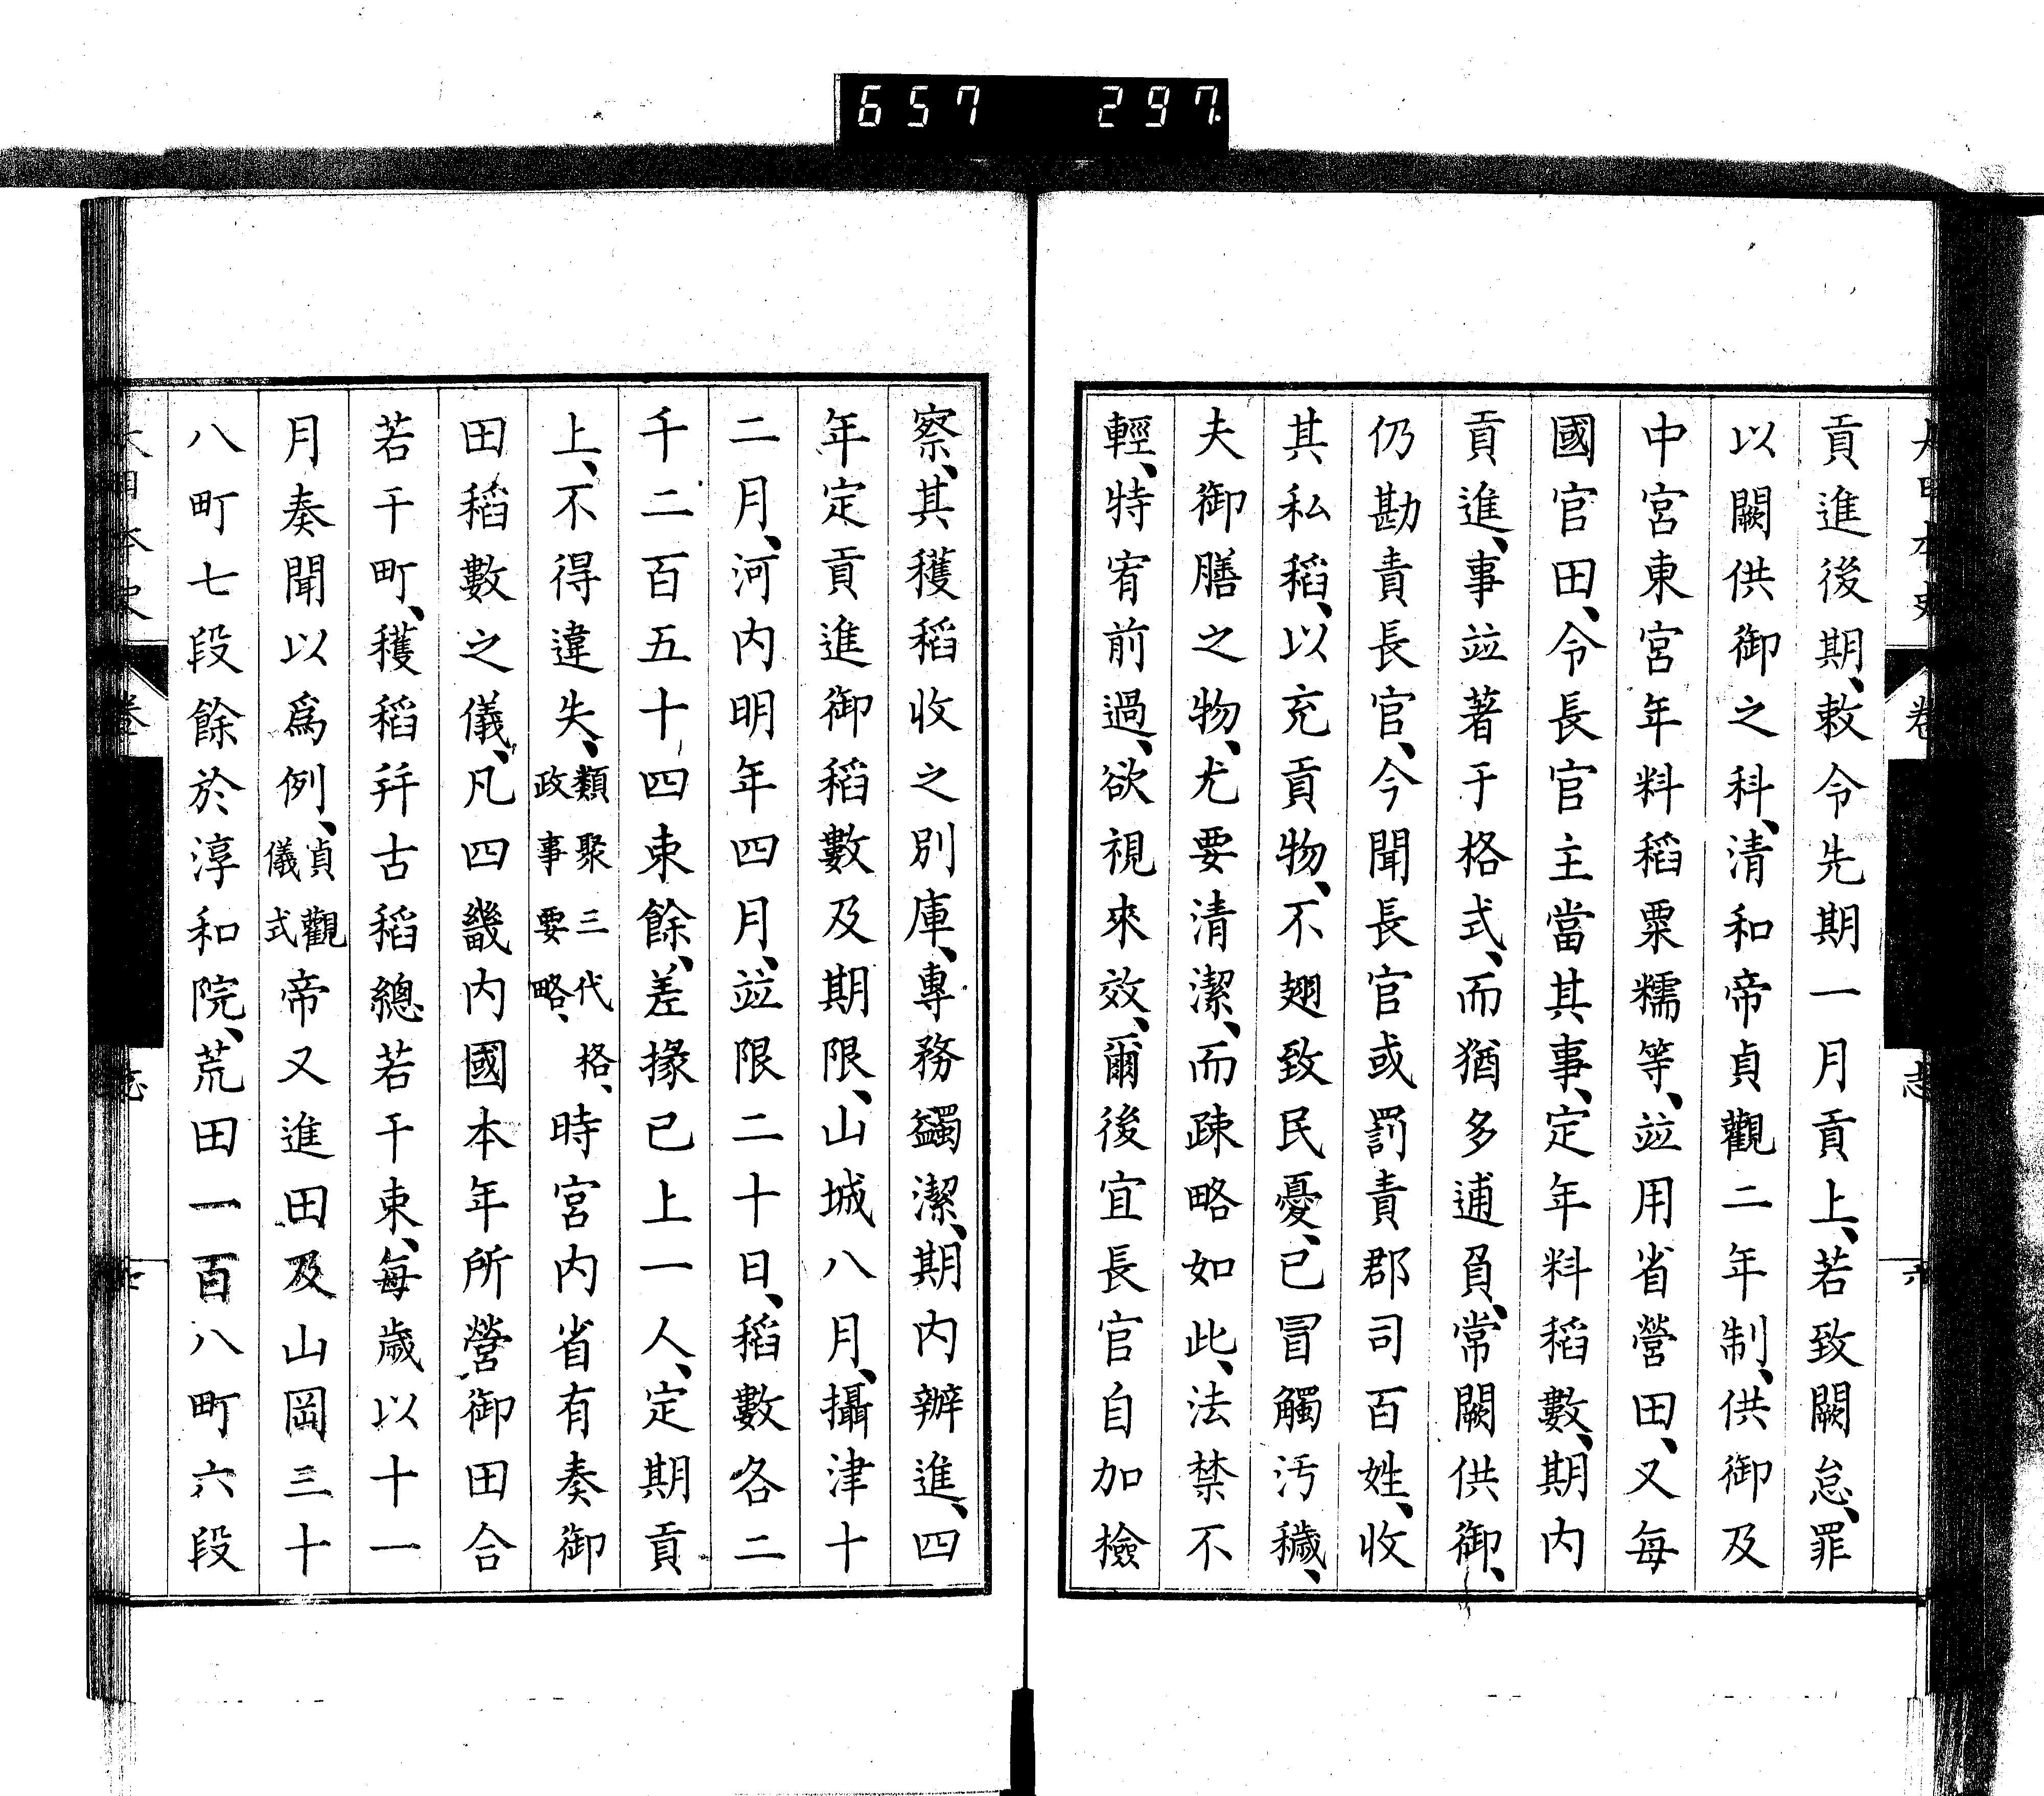 657 297.
貢進後期、敕令先期一月貢上、若致闕怠、罪
以闕供御之科、清和帝貞觀二年制、供御及
中宮東宮年料稻粟糯等、竝用省營田、又每
國官田、令長官主當其事、定年料稻數、期內
貢進、事竝著于格式、而猶多逋負、常闕供御、
仍勘責長官、今聞長官或罰責郡司百姓、收
其私稻、以充貢物、不翅致民憂、已冒觸汚穢、
夫御膳之物、尤要清潔、而疎略如此、法禁不
輕、特宥前過、欲視來效、爾後宜長官自加檢
察、其穫稻收之別庫、專務蠲潔、期內辦進、四
年定貢進御稻數及期限、山城八月、攝津十
二月、河內明年四月、竝限二十日、稻數各二
千二百五十四束餘、差掾已上一人、定期貢
上、不得違失、類聚三代格、政事要略、時宮內省有奏御
田稻數之儀、凡四畿內國本年所營御田合
若干町、穫稻幷古稻總若干束、每歲以十一
月奏聞以爲例、貞觀儀式帝又進田及山岡三十
八町七段餘於淳和院、荒田一百八町六段